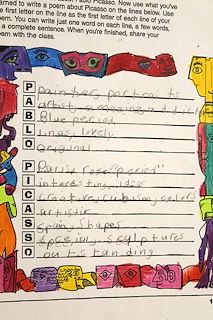 arned to write a poem about Picasso on the lines below. Use
e first letter on the line as the first letter of each line of your
em. You can write just one word on each line, a few words,
a complete sentence. When you're finished, share your
oem with the class.
P painter, portraits
A artist, amazing
B Blue period
L lines, lively
O original
P Paris, rose "period"
I interesting, idea
C creative, cubism, colors
A artistic
S Spain, Shapes
S special, sculptures
O outstanding